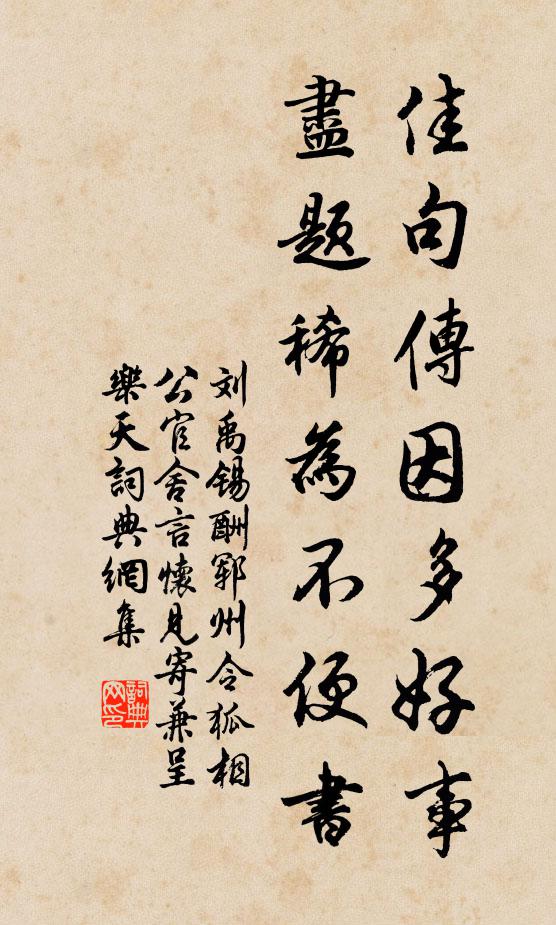 佳句傳因多好事
盡題稀為不便書
刘禹锡酬鄆州令狐相
公官舍言懷見寄兼呈
樂天詞典網集
詞典
网印